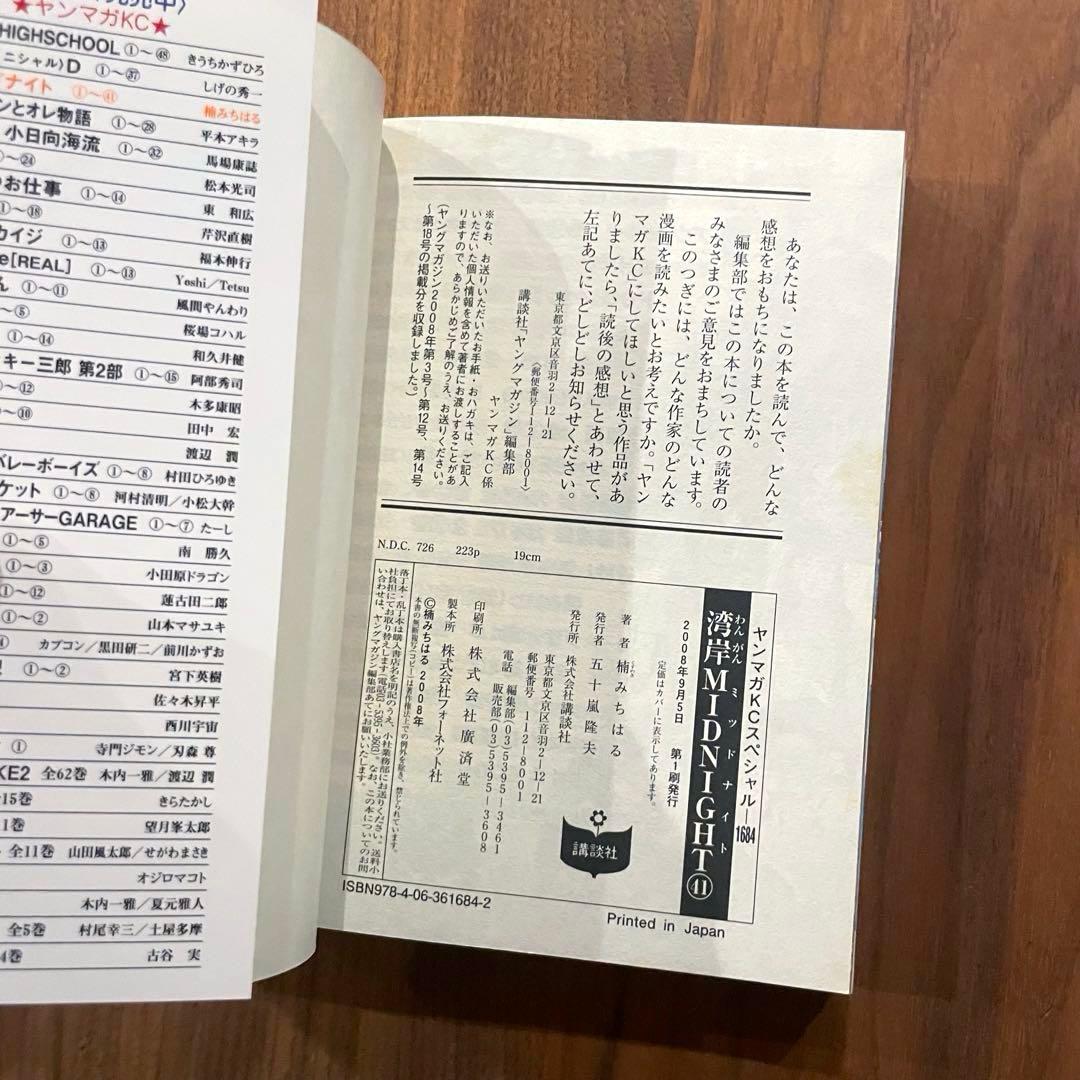 ★ヤンマガKC★
HIGHSCHOOL ①〜㊽ きうちかずひろ
ニシャル)D ①〜㊲ しげの秀一
ナイト ①〜㊶ 楠みちはる
ンとオレ物語 ①〜㉘ 平本アキラ
小日向海流 ①〜㉜ 馬場康誌
〜㉔ 松本光司
のお仕事 ①〜⑭ 東 和広
①〜⑱ 芹沢直樹
カイジ ①〜⑬ 福本伸行
e[REAL] ①〜⑬ Yoshi/Tetsu
ん ①〜⑪ 風間やんわり
〜⑤ 桜場コハル
①〜⑭ 和久井健
ッキー三郎 第2部 ①〜⑮ 阿部秀司
〜⑫ 木多康昭
〜⑩ 田中 宏
渡辺 潤
バレーボーイズ ①〜⑧ 村田ひろゆき
ケット ①〜⑧ 河村清明/小松大幹
アーサーGARAGE ①〜⑦ たーし
①〜⑤ 南 勝久
①〜③ 小田原ドラゴン
①〜⑫ 蓮古田二郎
①〜② 山本マサユキ
カプコン/黒田研二/前川かずお
①〜② 宮下英樹
佐々木昇平
西川宇宙
① 寺門ジモン/刃森 尊
KE2 全62巻 木内一雅/渡辺 潤
15巻 きらたかし
1巻 望月峯太郎
全11巻 山田風太郎/せがわまさき
オジロマコト
木内一雅/夏元雅人
全5巻 村尾幸三/土屋多摩
4巻 古谷 実
あなたは、この本を読んで、どんな
感想をおもちになりましたか。
編集部ではこの本についての読者の
みなさまのご意見をおまちしています。
このつぎには、どんな作家のどんな
漫画を読みたいとお考えですか。「ヤン
マガKC」にしてほしいと思う作品があ
りましたら、「読後の感想」とあわせて、
左記あてに、どしどしお知らせください。
東京都文京区音羽2—12—21
(郵便番号112—8001)
講談社「ヤングマガジン」編集部
ヤンマガKC係
※なお、お送りいただいたお手紙・おハガキは、ご記入
いただいた個人情報を含めて著者にお渡しすることがあ
りますので、あらかじめご了解のうえ、お送りください。
(ヤングマガジン2008年第3号〜第12号、第14号
〜第18号の掲載分を収録しました。)
N.D.C. 726 223p 19cm
ヤンマガKCスペシャル—1684
湾岸MIDNIGHT㊶
わんがんミッドナイト
2008年9月5日 第1刷発行
定価はカバーに表示してあります。
著者 楠みちはる
くすのき
発行者 五十嵐隆夫
発行所 株式会社講談社
東京都文京区音羽2—12—21
郵便番号 112—8001
電話 編集部(03)5395—3461
販売部(03)5395—3608
印刷所 株式会社廣済堂
製本所 株式会社フォーネット社
©楠みちはる 2008年
本書の無断複写(コピー)は著作権法上での例外を除き、禁じられています。
落丁本・乱丁本は購入書店名を明記のうえ、小社業務部にお送りください。送料小
社負担にてお取り替えします(電話03—5395—3603)。なお、この本についてのお問
い合わせは、ヤングマガジン編集部あてにお願いいたします。
講談社
ISBN978-4-06-361684-2
Printed in Japan